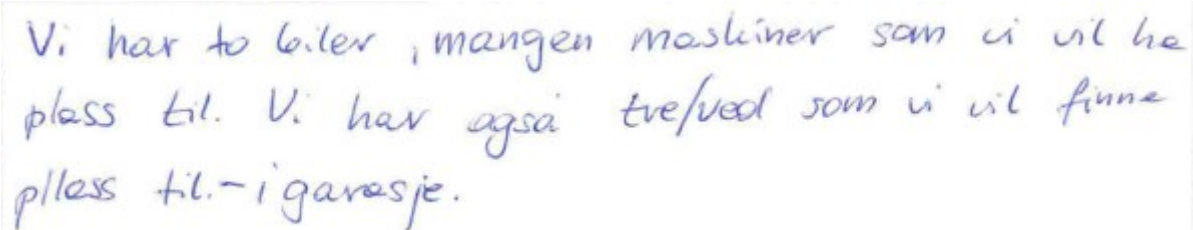 Vi har to biler, mangen maskiner som vi vil ha
plass til. Vi har også tre/ved som vi vil finne
pllass til.-i garasje.